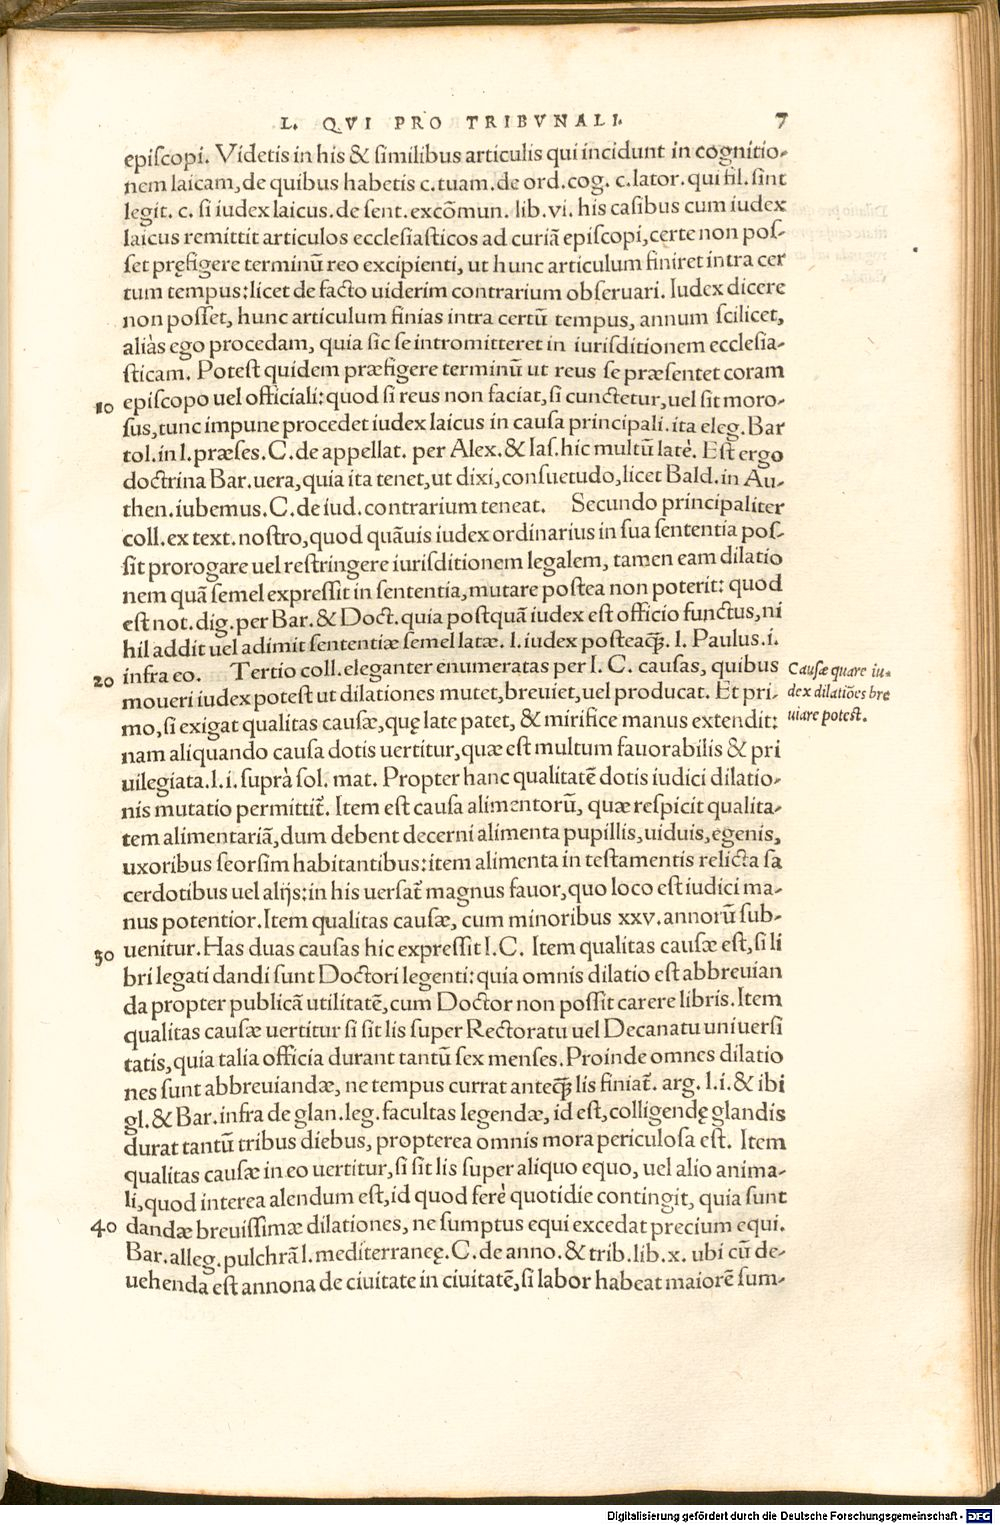 L. QVI PRO TRIBVNALI. 7
episcopi. Videtis in his & similibus articulis qui incidunt in cognitio-
nem laicam, de quibus habetis c. tuam. de ord. cog. c. lator. qui fil. sint
legit. c. si iudex laicus. de sent. excõmun. lib. vi. his casibus cum iudex
laicus remittit articulos ecclesiasticos ad curiã episcopi, certe non pos-
set pręfigere terminũ reo excipienti, ut hunc articulum finiret intra cer
tum tempus: licet de facto uiderim contrarium obseruari. Iudex dicere
non posset, hunc articulum finias intra certũ tempus, annum scilicet,
aliàs ego procedam, quia sic se intromitteret in iurisditionem ecclesia-
sticam. Potest quidem præfigere terminũ ut reus se præsentet coram
10 episcopo uel officiali: quod si reus non faciat, si cunctetur, uel sit moro-
sus, tunc impune procedet iudex laicus in causa principali. ita eleg. Bar
tol. in l. præses. C. de appellat. per Alex. & Ias. hic multũ latè. Est ergo
doctrina Bar. uera, quia ita tenet, ut dixi, consuetudo, licet Bald. in Au-
then. iubemus. C. de iud. contrarium teneat. Secundo principaliter
coll. ex text. nostro, quod quãuis iudex ordinarius in sua sententia pos-
sit prorogare uel restringere iurisditionem legalem, tamen eam dilatio
nem quã semel expressit in sententia, mutare postea non poterit: quod
est not. dig. per Bar. & Doct. quia postquã iudex est officio functus, ni
hil addit uel adimit sententiæ semel latæ. l. iudex posteaq̃. l. Paulus. i.
20 infra eo. Tertio coll. eleganter enumeratas per I. C. causas, quibus
moueri iudex potest ut dilationes mutet, breuiet, uel producat. Et pri-
mo, si exigat qualitas causæ, quę late patet, & mirifice manus extendit:
nam aliquando causa dotis uertitur, quæ est multum fauorabilis & pri
uilegiata. l. i. suprà sol. mat. Propter hanc qualitatẽ dotis iudici dilatio-
nis mutatio permittit᷑. Item est causa alimentorũ, quæ respicit qualita-
tem alimentariã, dum debent decerni alimenta pupillis, uiduis, egenis,
uxoribus seorsim habitantibus: item alimenta in testamentis relicta sa
cerdotibus uel alijs: in his uersat᷑ magnus fauor, quo loco est iudici ma-
nus potentior. Item qualitas causæ, cum minoribus xxv. annorũ sub-
30 uenitur. Has duas causas hic expressit I. C. Item qualitas causæ est, si li
bri legati dandi sunt Doctori legenti: quia omnis dilatio est abbreuian
da propter publicã utilitatẽ, cum Doctor non possit carere libris. Item
qualitas causæ uertitur si sit lis super Rectoratu uel Decanatu uniuersi
tatis, quia talia officia durant tantũ sex menses. Proinde omnes dilatio
nes sunt abbreuiandæ, ne tempus currat anteq̃ lis finiat᷑. arg. l. i. & ibi
gl. & Bar. infra de glan. leg. facultas legendæ, id est, colligendę glandis
durat tantũ tribus diebus, propterea omnis mora periculosa est. Item
qualitas causæ in eo uertitur, si sit lis super aliquo equo, uel alio anima-
li, quod interea alendum est, id quod ferè quotidie contingit, quia sunt
40 dandæ breuissimæ dilationes, ne sumptus equi excedat precium equi.
Bar. alleg. pulchrã l. mediterraneę. C. de anno. & trib. lib. x. ubi cũ de-
uehenda est annona de ciuitate in ciuitatẽ, si labor habeat maiorẽ sum-
Causæ quare iu-
dex dilatiões bre
uiare potest.
Digitalisierung gefördert durch die Deutsche Forschungsgemeinschaft - DFG